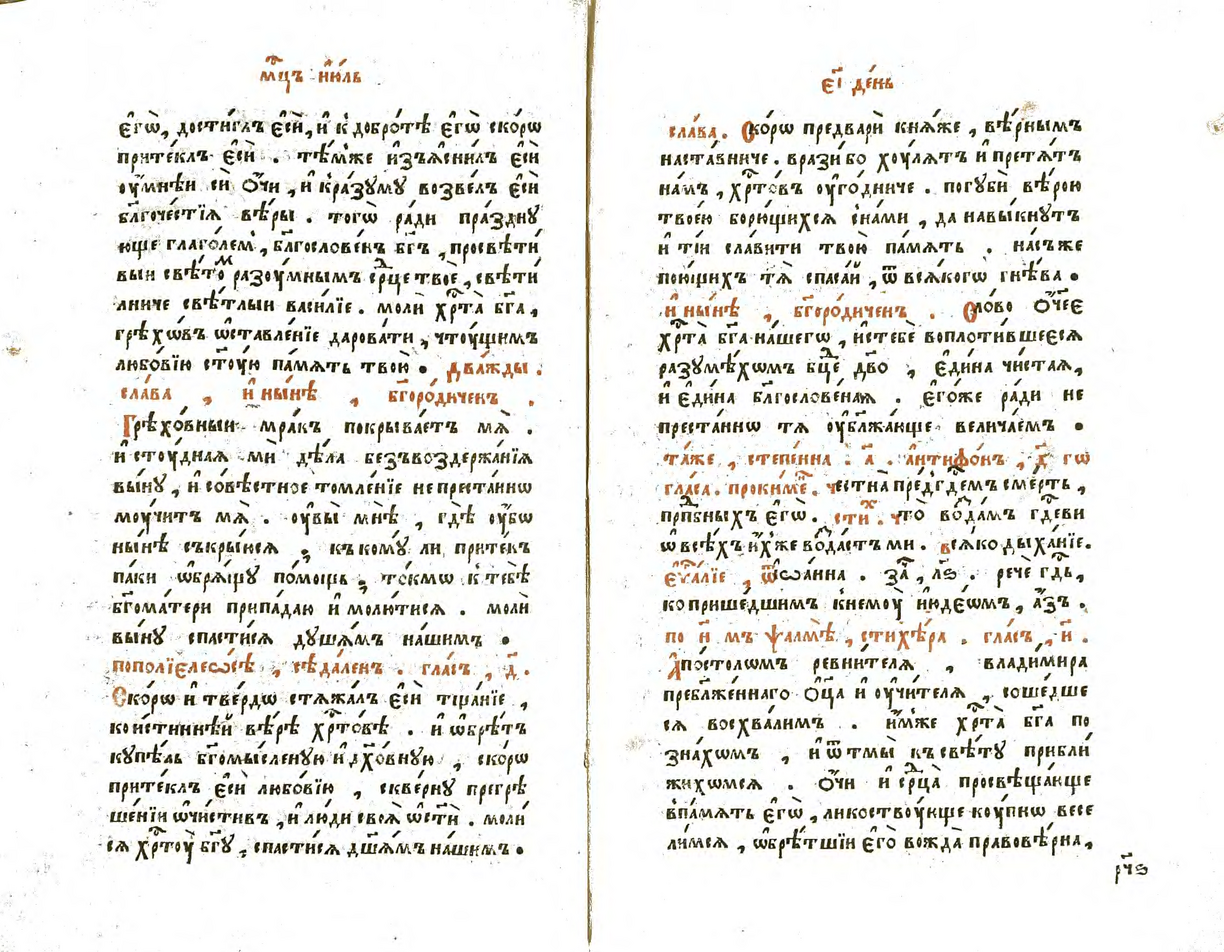 мц҃ъ і҆ю́ль
є҆гѡ̀, дости́глъ є҆сѝ, и҆ к̾ добро́тѣ є҆гѡ̀ ско́рѡ
прите́клъ є҆сѝ . тѣ́мже и҆зъѧсни́лъ є҆сѝ
ᲂу҆́мнѣи си ѻ҆́чи , и҆ к̾ ра́зуму возве́лъ є҆сѝ
бл҃гоче́стїѧ вѣ́ры . тогѡ̀ ра́ди пра́здну
юще глаго́лем̾, бл҃гослове́нъ бг҃ъ , просвѣти́
выи свѣ́томъ разᲂу́мнымъ ср҃це твоѐ , свѣти́
лниче свѣ́тлыи васи́лїе . молѝ хрⷭ҇та̀ бг҃а ,
грѣхѡ́въ ѡ҆ставле́нїе дарова́ти , чтᲂу́щимъ
любо́вїю ст҃ᲂу́ю па́мѧть твою̀ . два́жды .
сла́ва , и҆ ны́нѣ , бг҃оро́диченъ .
Грѣхо́вныи мра́къ покрыва́етъ мѧ̀ .
и҆ стᲂу́днаѧ ми дѣ́ла безъвоздержа́нїѧ
вы́ну , и҆ со́вѣстное томле́нїе непреста́ннѡ
мᲂу́читъ мѧ̀ . ᲂу҆вы̀ мнѣ̀ , гдѣ̀ ᲂу҆́бѡ
ны́нѣ съкры́юсѧ , къ кому́ ли прите́къ
па́ки ѡ҆брѧ́щу по́мощь , то́кмѡ к̾ тебѣ̀
бг҃ома́тери припа́даю и҆ молю́тисѧ . молѝ
вы́ну спасти́сѧ душа́мъ на́шимъ .
по полїєлеѡ́сѣ , сѣда́ленъ . гла́съ , д҃ .
Ско́рѡ и҆ тве́рдѡ стѧжа́лъ є҆сѝ тща́нїе ,
ко и҆́стиннѣй вѣ́рѣ хрⷭ҇то́вѣ . и҆ ѡ҆брѣ́тъ
купѣ́ль бг҃омы́сленую и҆ дх҃о́вную , ско́рѡ
прите́клъ є҆сѝ любо́вїю , скве́рну прегрѣ
ше́нїи ѡ҆чи́стивъ , и҆ лю́ди своѧ̀ ѡ҆ст҃ѝ . моли́
сѧ хрⷭ҇тᲂу̀ бг҃у , спасти́сѧ дш҃а́мъ на́шимъ .
є҃і де́нь
сла́ва . Ско́рѡ предварѝ кнѧ́же , вѣ́рнымъ
наста́вниче . врази́ бо хᲂу́лѧтъ и҆ претѧ́тъ
на́мъ , хрⷭ҇то́въ ᲂу҆го́дниче . погубѝ вѣ́рою
твое́ю борю́щихсѧ с̾на́ми , да навы́кнутъ
и҆ ті́и сла́вити твою̀ па́мѧть . на́съ же
пою́щихъ тѧ̀ спаса́й , ѿ всѧ́когѡ гнѣ́ва .
и҆ ны́нѣ , бг҃оро́диченъ . Сло́во ѻ҆́чее
хрⷭ҇та̀ бг҃а на́шегѡ , и҆с тебѐ вопло́тившеесѧ
разумѣ́хѡмъ бц҃е дв҃о , є҆ди́на чи́стаѧ,
и҆ є҆ди́на бл҃гослове́наѧ . є҆гѡ́же ра́ди не
преста́ннѡ тѧ ᲂу҆бл҃жа́юще велича́емъ .
та́же , степе́нна . а҃ . а҆нтифо́нъ , д҃ гѡ
гла́са . прокиме́нъ . честна̀ пред̾ гдⷭ҇емъ сме́рть ,
прпⷣбныхъ є҆гѡ̀ . сти́хъ . что̀ возда́мъ гдⷭ҇еви
ѡ҆ всѣ́хъ и҆́хже возда́стъ ми . всѧ́ко дыха́нїе.
є҆ѵⷢ҇лїе , ѿ і҆ѡа́нна . за҃ , лѕ҃ . речѐ гдⷭ҇ь,
ко прише́дшимъ к̾ немᲂу̀ і҆юде́ѡмъ , а҆́зъ .
по н҃ мъ ѱалмѣ̀ , стихе́ра . гла́съ , и҃ .
А҆по́столѡмъ ревни́телѧ , влади́мира
пребл҃же́ннаго ѻ҆ц҃а̀ и҆ ᲂу҆чи́телѧ , соше́дше
сѧ восхва́лимъ . и҆́мже хрⷭ҇та̀ бг҃а по
зна́хѡмъ , и҆ ѿ тмы̀ къ свѣ́ту прибли́
жихѡмсѧ . ѻ҆́чи и҆ срⷣца̀ просвѣща́юще
в̾ па́мѧть є҆гѡ̀ , ликоствᲂу́юще кᲂу́пнѡ весе
ли́мсѧ , ѡ҆брѣ́тшїи є҆го̀ вожда̀ правовѣ́рна,
рч҃ѕ